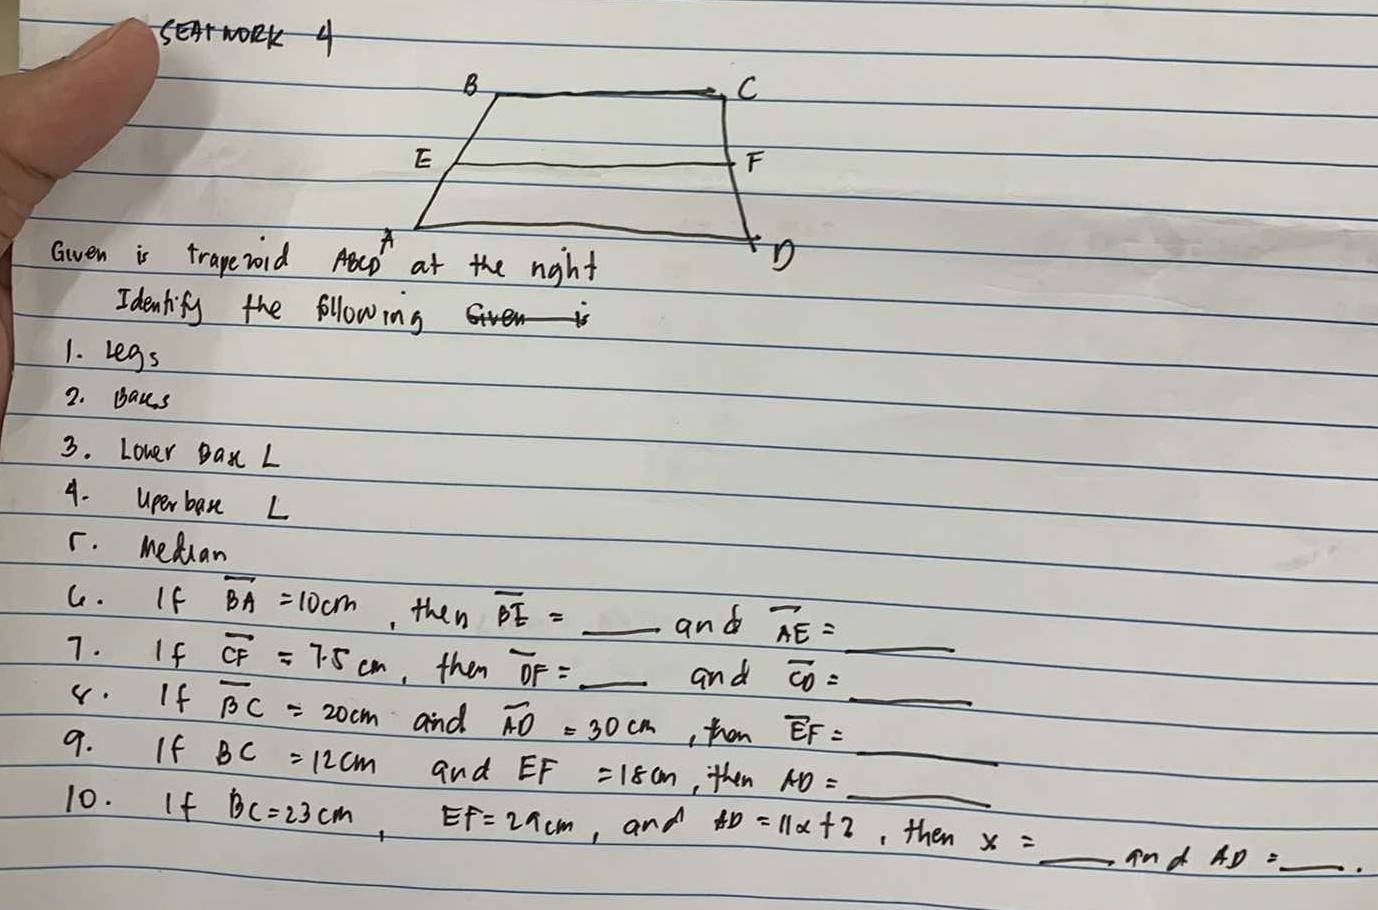 SEATWORK 4
B C
E F
A D
Given is trapezoid ABCD at the right
Identify the following Given is
1. Legs
2. Bases
3. Lower Base L
4. Uper base L
5. Median
6. If BA = 10cm, then BE = ____ and AE = ____
7. If CF = 7.5 cm, then DF = ____ and CD = ____
8. If BC = 20cm and AD = 30 cm, then EF = ____
9. If BC = 12cm and EF = 18cm, then AD = ____
10. If BC = 23cm, EF = 29cm, and AD = 11x + 2, then x = ____ and AD = ____.